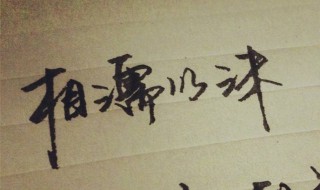 相濡以沫